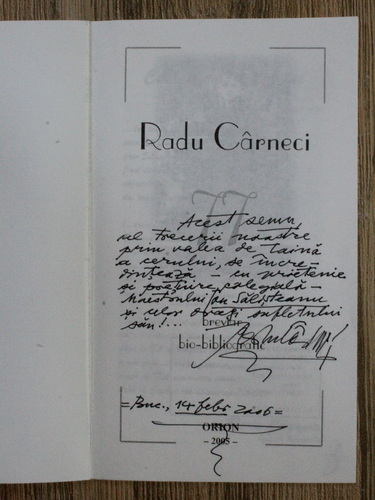 Radu Cârneci
77
Acest semn,
al trecerii noastre
prin valea de taină
a cerului, se încre-
dințează – cu prietenie
și prețuire colegială –
Maestrului Ion Sălișteanu
și celor dragi sufletului
său!...
breviar
bio-bibliografic
=Buc., 14 febr 2006=
ORION
– 2005 –